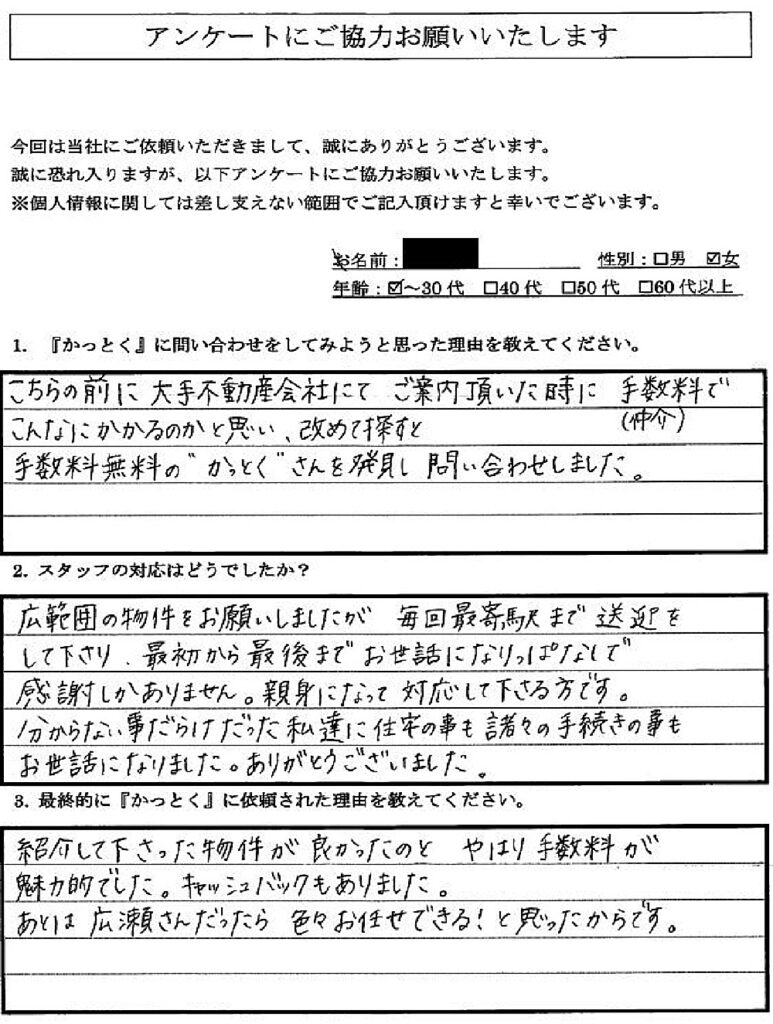 アンケートにご協力お願いいたします
今回は当社にご依頼いただきまして、誠にありがとうございます。
誠に恐れ入りますが、以下アンケートにご協力お願いいたします。
※個人情報に関しては差し支えない範囲でご記入頂けますと幸いでございます。
お名前： 性別：□男 ☑女
年齢：☑～30代 □40代 □50代 □60代以上
1. 『かっとく』に問い合わせをしてみようと思った理由を教えてください。
こちらの前に 大手不動産会社にて ご案内頂いた時に 手数料で
(仲介)
こんなにかかるのかと思い、改めて探すと
手数料無料の"かっとく"さんを発見し 問い合わせしました。
2. スタッフの対応はどうでしたか？
広範囲の物件をお願いしましたが 毎回最寄駅まで 送迎を
して下さり、最初から最後まで お世話になりっぱなしで
感謝しかありません。親身になって 対応して下さる方です。
分からない事だらけだった私達に 住宅の事も 諸々の手続きの事も
お世話になりました。ありがとうございました。
3. 最終的に『かっとく』に依頼された理由を教えてください。
紹介して下さった物件が 良かったのと やはり 手数料が
魅力的でした。キャッシュバックもありました。
あとは 広瀬さんだったら 色々お任せできる！と思ったからです。